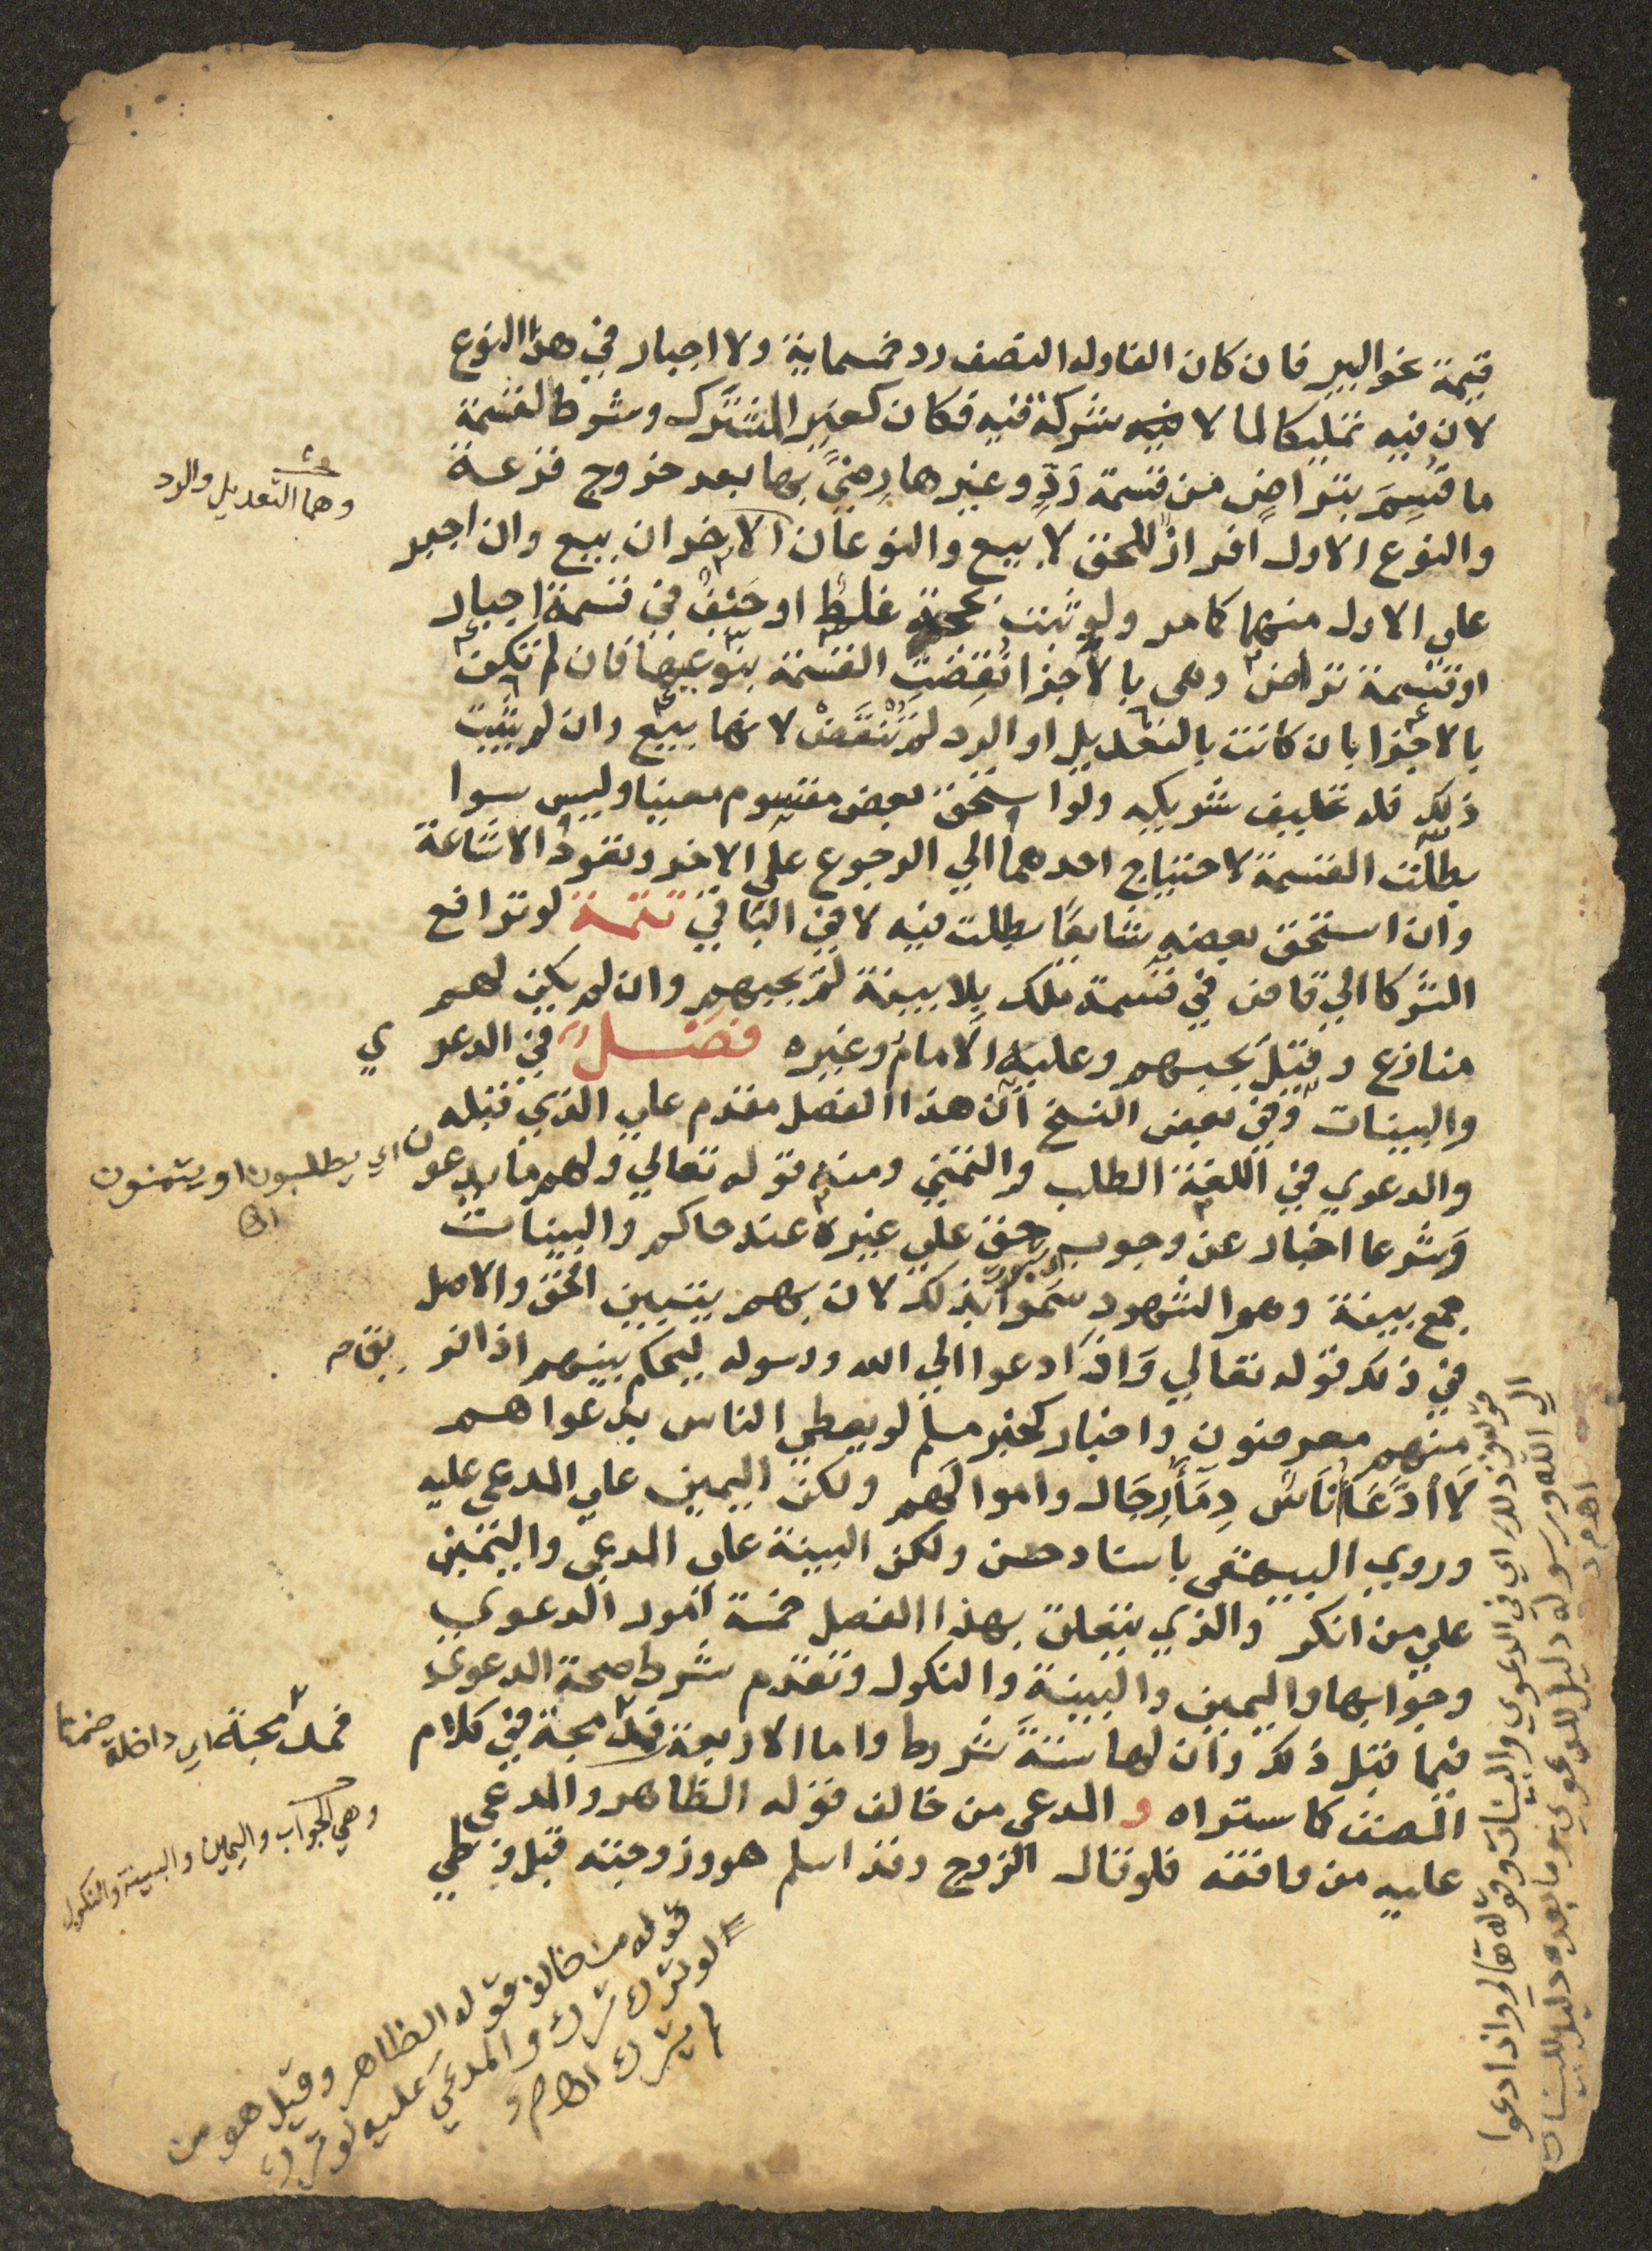 قيمة نحو البير فان كان الفا وله النصف رد خمسماية ولا اجبار في هذا النوع
لان فيه تمليكا لما لا شركة فيه فكان كغير المشترك وشرط لقسمة
ما قُسِمَ بتراضٍ من قسمة رَدٍّ وغيرها رِضيً بها بعد خروج قرعة
والنوع الاول افراز للحق لا بيع والنوعان الاخران بيع وان اجبر
على الاول منهما كما مر ولو ثبت بحجة غلط او حَيْفٌ في قسمة اجبار
او قسمة تراضٍ وهى بالاجزا نُقِضَتِ القسمة بنوعيها فان لم تكن
بالاجزا بان كانت بالتعديل او الرد لم تُنْقَضْ لانها بيع وان لم يثبت
ذلك فله تحليف شريكه ولو استحق بعض مقسوم معينا وليس سوا
بطلت القسمة لاحتياج احدهما الي الرجوع علي الاخر وتعود الاشاعة
وان استحق بعضه شايعًا بطلت فيه لا في الباقي تتمة لو ترافع
الشركا الي قاض في قسمة ملك بلا بينة لم يجبهم وان لم يكن لهم
منازع وقيل يجيبهم وعليه الامام وغيره فصل في الدعوي
والبينات وفي بعض النسخ ان هذا الفصل مقدم علي الذي قبله
والدعوي في اللغة الطلب والتمني ومنه قوله تعالي ولهم ما يدعون
وشرعا اخبار عن وجوب حق علي غيره عند حاكم والبينات
جمع بينة وهو الشهود سموا بذلك لان بهم يتبين الحق والاصل
في ذلك قوله تعالي وَاذا دعوا الي الله ورسوله ليحكم بينهم اذا فريق
منهم معرضون واخبار كخبر مسلم لو يعطي الناس بدعواهم
لَأدَّعَا نَاسٌ دِمَأَ رِجَال واموالهم ولكن اليمين علي المدعى عليه
وروي البيهقى باسناد حسن ولكن البينة على المدعى واليمين
علي من انكر والذي يتعلق بهذا الفصل خمسة امور الدعوي
وجوابها واليمين والبينة والنكول وتقدم شرط صحة الدعوي
فيما قبل ذلك وان لها ستةَ شروط واما الاربعة فمدمجة في كلام
المصنف كما ستراه و المدعى من خالف قوله الظاهر والمدعى
عليه من وافقه فلو قال الزوج وقد اسلم هو وزوجته قبل وطي
وهما التعديل والرد
اي يطلبون او يتمنون
اه
فمدمجة اي داخلة ضمنا
وهي الجواب واليمين والبينة والنكول
قوله من خالف قوله الظاهر وقيل هو من
لو ترك ترك والمدعي عليه لو ترك
لم يترك اه م ر
قوله في ذلك اي في الدعوي والبينات وقوله تعالي واذا دعوا
الي الله ورسوله دليل للدعوي وما بعده دليل للبينات
اه م د